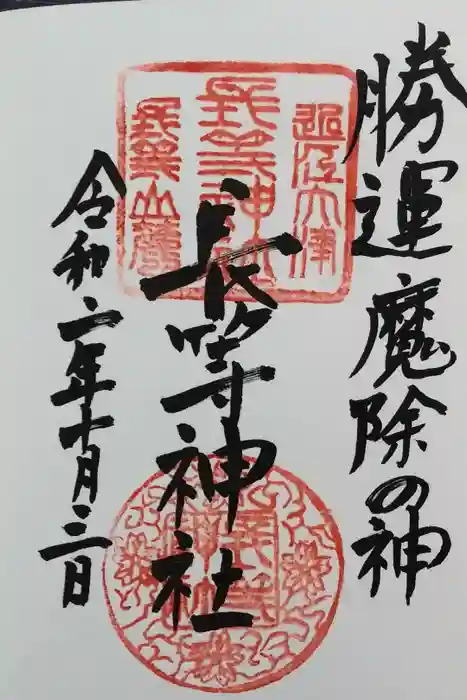 勝運魔除の神
長等神社
令和二年十月三日
近江大津
長等神社
長等山麓
長等
神社